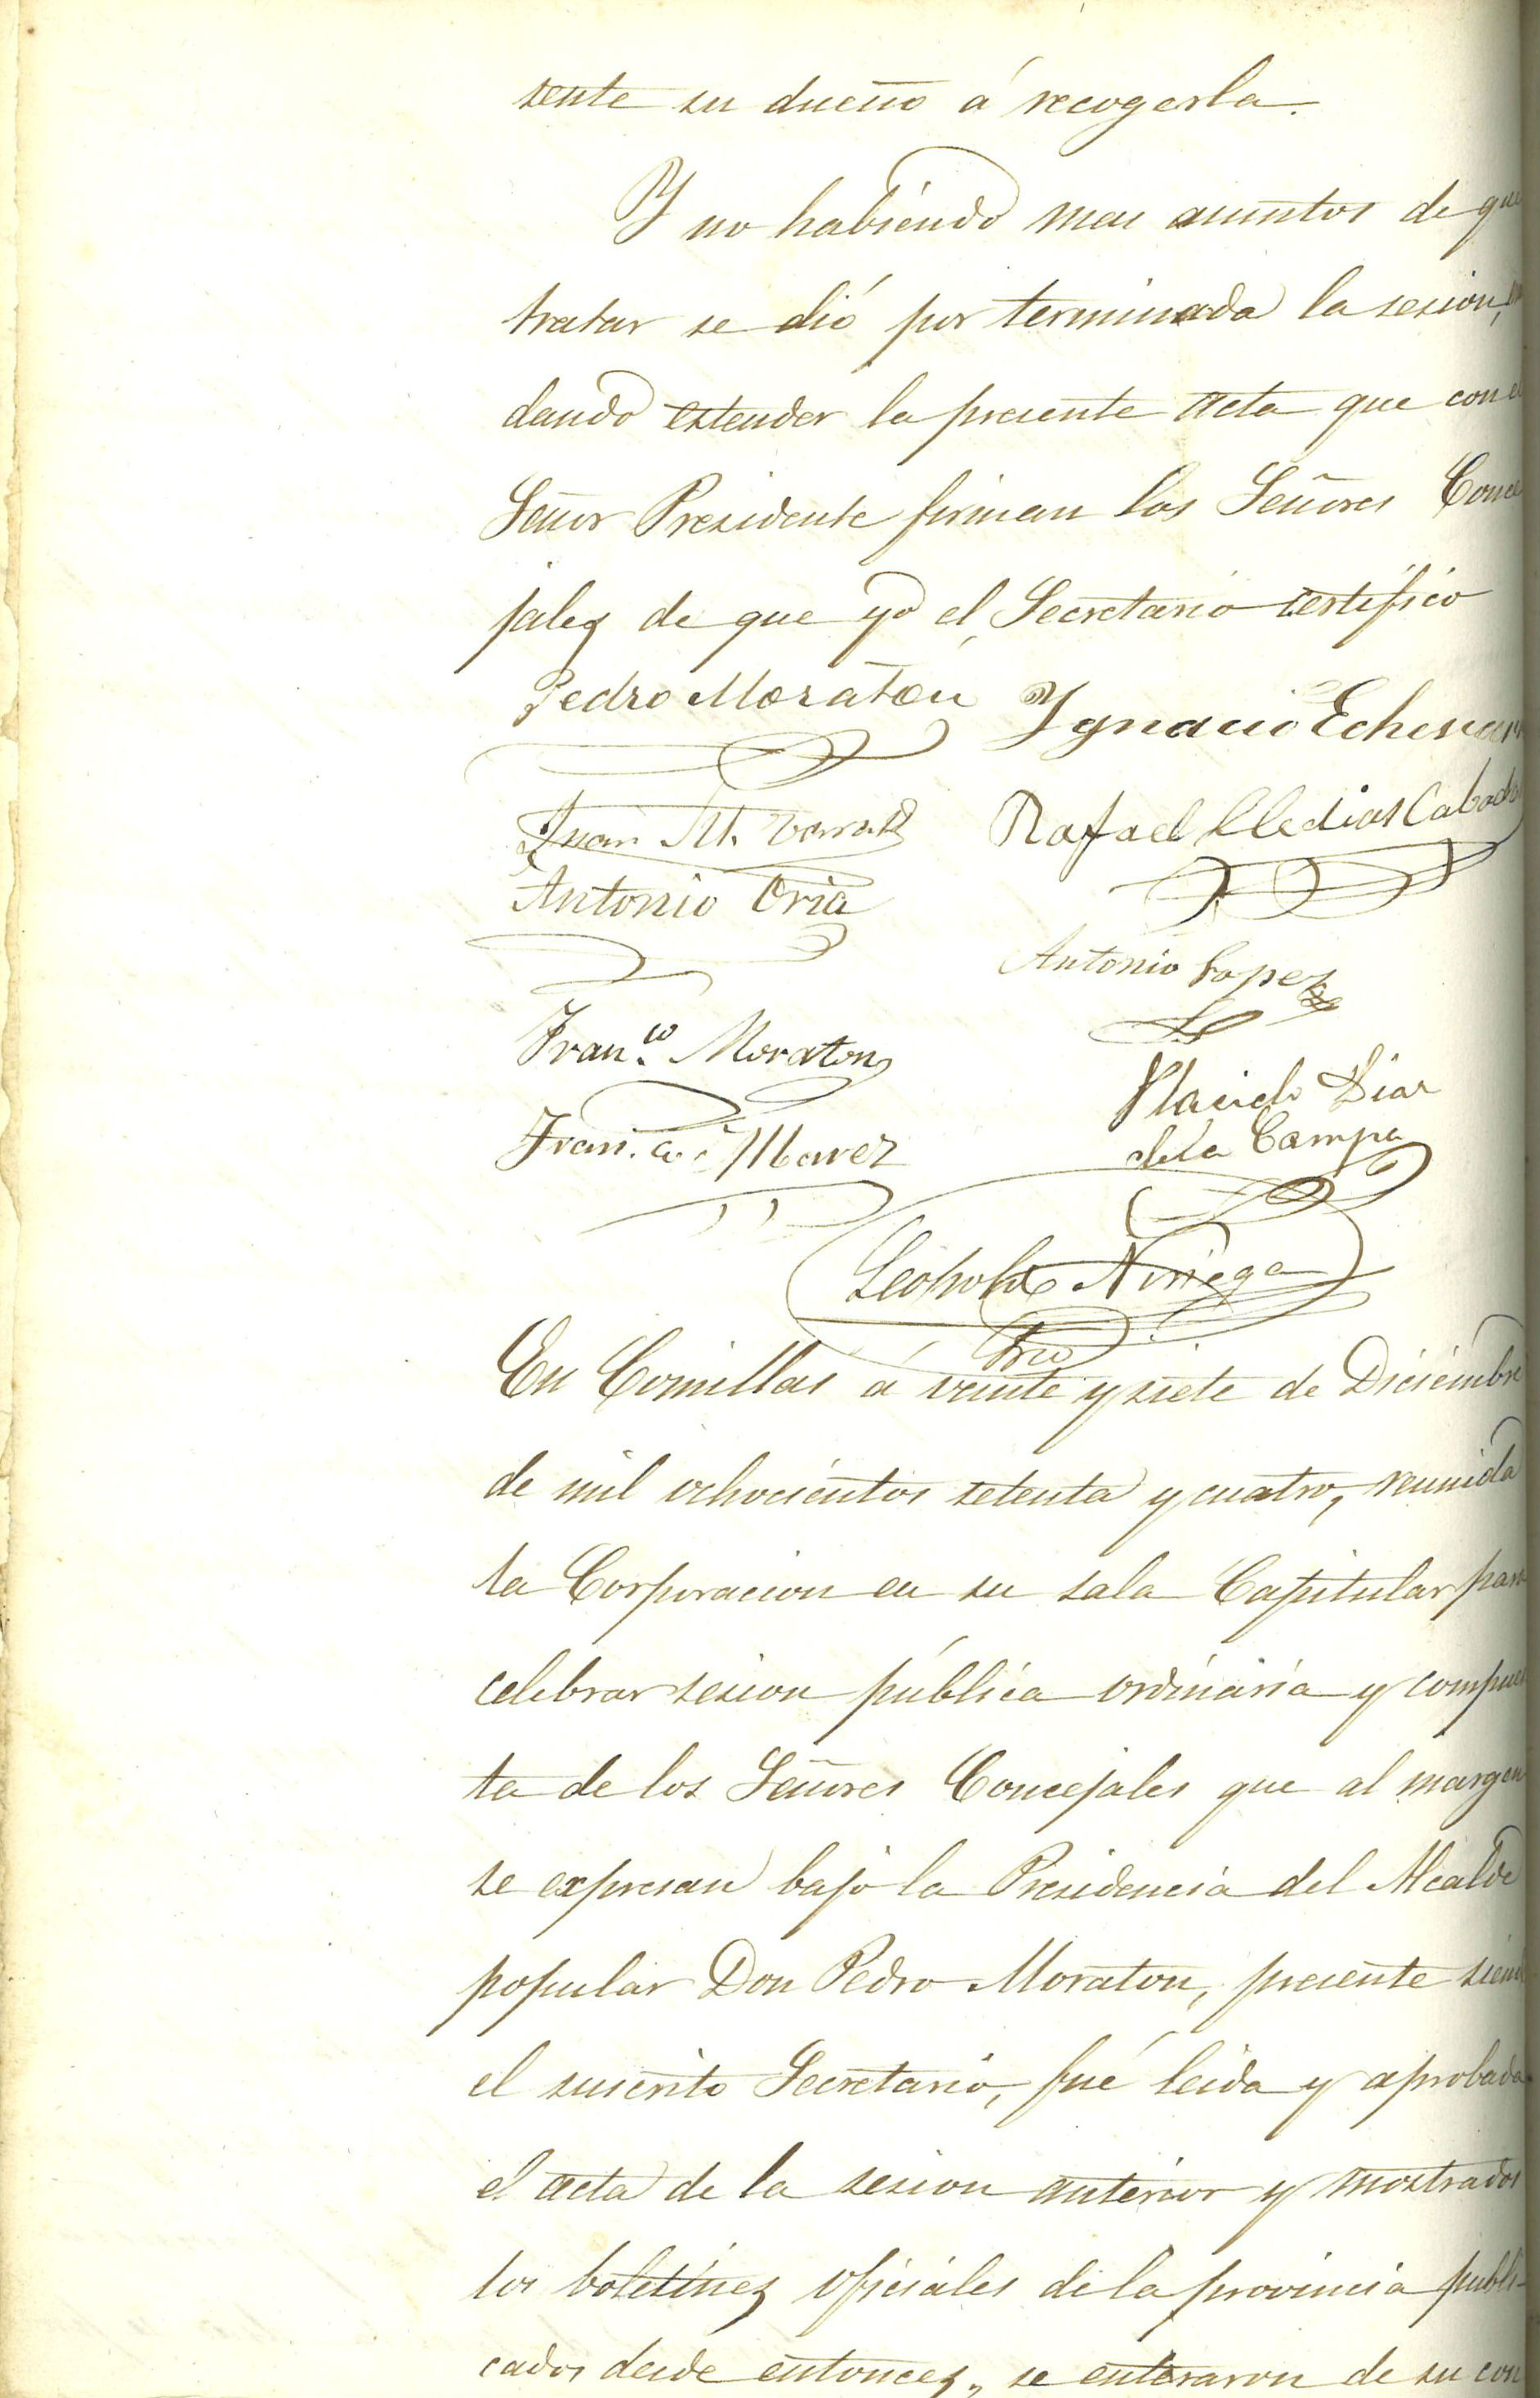 sente su dueño á recogerla.
Y no habiendo mas asuntos de que
tratar se dió por terminada la sesion,
dando estender la presente acta que con el
Señor Presidente firman los Señores Conce
jales de que yo el Secretario certifico
Pedro Moraton Ygnacio Echevarr
Juan M. Rafael Cledias Cabad
Antonio Oria
Antonio Lopez
Fran.co Moraton
Placido Diaz
de la Campa
Fran.co
Leopoldo Noriega
Srio
En Comillas á veinte y siete de Diciembre
de mil ochocientos setenta y cuatro, reunida
la Corporacion en su sala Capitular para
celebrar sesion pública ordinaria y compues
ta de los Señores Concejales que al margen
se expresan bajo la Presidencia del Alcalde
popular Don Pedro Moraton, presente siend
el suscrito Secretario, fué leida y aprobada
el acta de la sesion anterior y mostrados
los boletines oficiales de la provincia publi-
cados desde entonces, se enteraron de su con